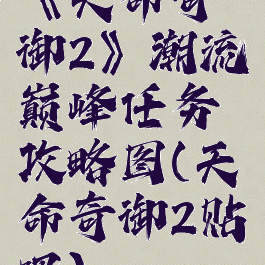 《天命奇
御2》潮流
巅峰任务
攻略图(天
命奇御2贴
吧)